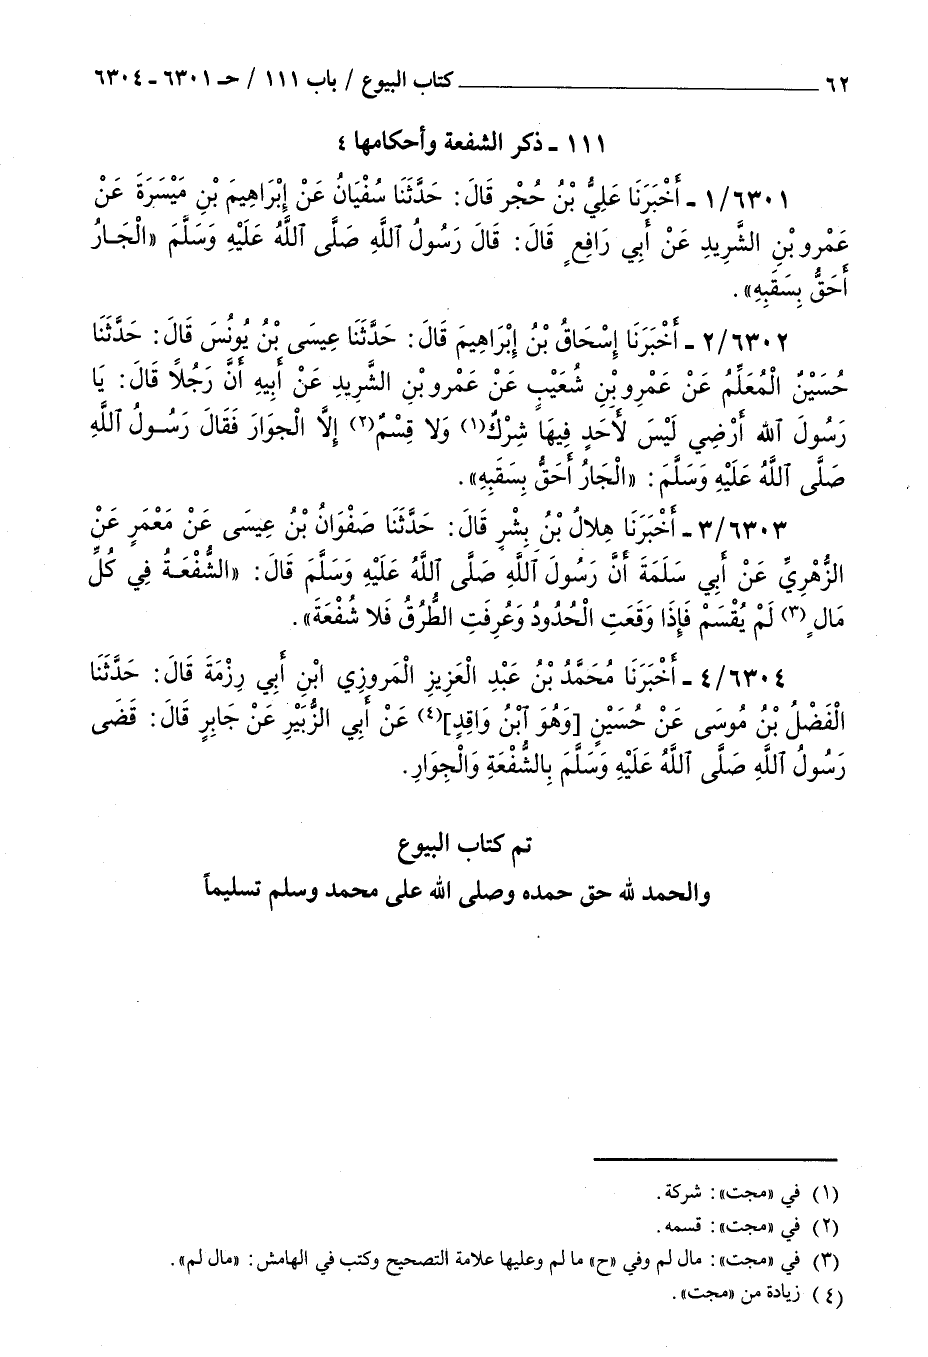 ٦٢ كتاب البيوع / باب ١١١ / حـ ٦٣٠١ ـ ٦٣٠٤
١١١ ـ ذكر الشفعة وأحكامها ٤
١/٦٣٠١ ـ أَخْبَرَنَا عَلِيُّ بْنُ حُجْرٍ قَالَ: حَدَّثَنَا سُفْيَانُ عَنْ إِبْرَاهِيمَ بْنِ مَيْسَرَةَ عَنْ
عَمْرِو بْنِ الشَّرِيدِ عَنْ أَبِي رَافِعٍ قَالَ: قَالَ رَسُولُ ٱللَّهِ صَلَّى ٱللَّهُ عَلَيْهِ وَسَلَّمَ «الْجَـارُ
أَحَقُّ بِسَقَبِهِ».
٢/٦٣٠٢ ـ أَخْبَرَنَا إِسْحَاقُ بْنُ إِبْرَاهِيمَ قَالَ: حَدَّثَنَا عِيسَى بْنُ يُونُسَ قَالَ: حَدَّثَنَا
حُسَيْنٌ الْمُعَلِّمُ عَنْ عَمْرِو بْنِ شُعَيْبٍ عَنْ عَمْرِو بْنِ الشَّرِيدِ عَنْ أَبِيهِ أَنَّ رَجُلاً قَالَ: يَا
رَسُولَ ٱلله أَرْضِي لَيْسَ لأَحَدٍ فِيهَا شِرْكٌ(١) وَلا قِسْمٌ(٢) إِلَّا الْجِوَارَ فَقَالَ رَسُـولُ ٱللَّهِ
صَلَّى ٱللَّهُ عَلَيْهِ وَسَلَّمَ: «الْجَارُ أَحَقُّ بِسَقَبِهِ».
٣/٦٣٠٣ ـ أَخْبَرَنَا هِلالُ بْنُ بِشْرٍ قَالَ: حَدَّثَنَا صَفْوَانُ بْنُ عِيسَى عَنْ مَعْمَرٍ عَنْ
الزُّهْرِيِّ عَنْ أَبِي سَلَمَةَ أَنَّ رَسُولَ ٱللَّهِ صَلَّى ٱللَّهُ عَلَيْهِ وَسَلَّمَ قَالَ: «الشُّفْعَـةُ فِي كُلِّ
مَالٍ(٣) لَمْ يُقْسَمْ فَإِذَا وَقَعَتِ الْحُدُودُ وَعُرِفَتِ الطُّرُقُ فَلا شُفْعَةَ».
٤/٦٣٠٤ ـ أَخْبَرَنَا مُحَمَّدُ بْنُ عَبْدِ الْعَزِيزِ الْمَروزِي ابْنِ أَبِي رِزْمَةَ قَالَ: حَدَّثَنَا
الْفَضْلُ بْنُ مُوسَى عَنْ حُسَيْنٍ [وَهُوَ ٱبْنُ وَاقِدٍ](٤) عَنْ أَبِي الزُّبَيْرِ عَنْ جَابِرٍ قَالَ: قَضَى
رَسُولُ ٱللَّهِ صَلَّى ٱللَّهُ عَلَيْهِ وَسَلَّمَ بِالشُّفْعَةِ وَالْجِوَارِ.
تم كتاب البيوع
والحمد لله حق حمده وصلى الله على محمد وسلم تسليماً
(١) في «مجت»: شركة.
(٢) في «مجت»: قسمه.
(٣) في «مجت»: مال لم وفي «ح» ما لم وعليها علامة التصحيح وكتب في الهامش: «مال لم».
(٤) زيادة من «مجت».